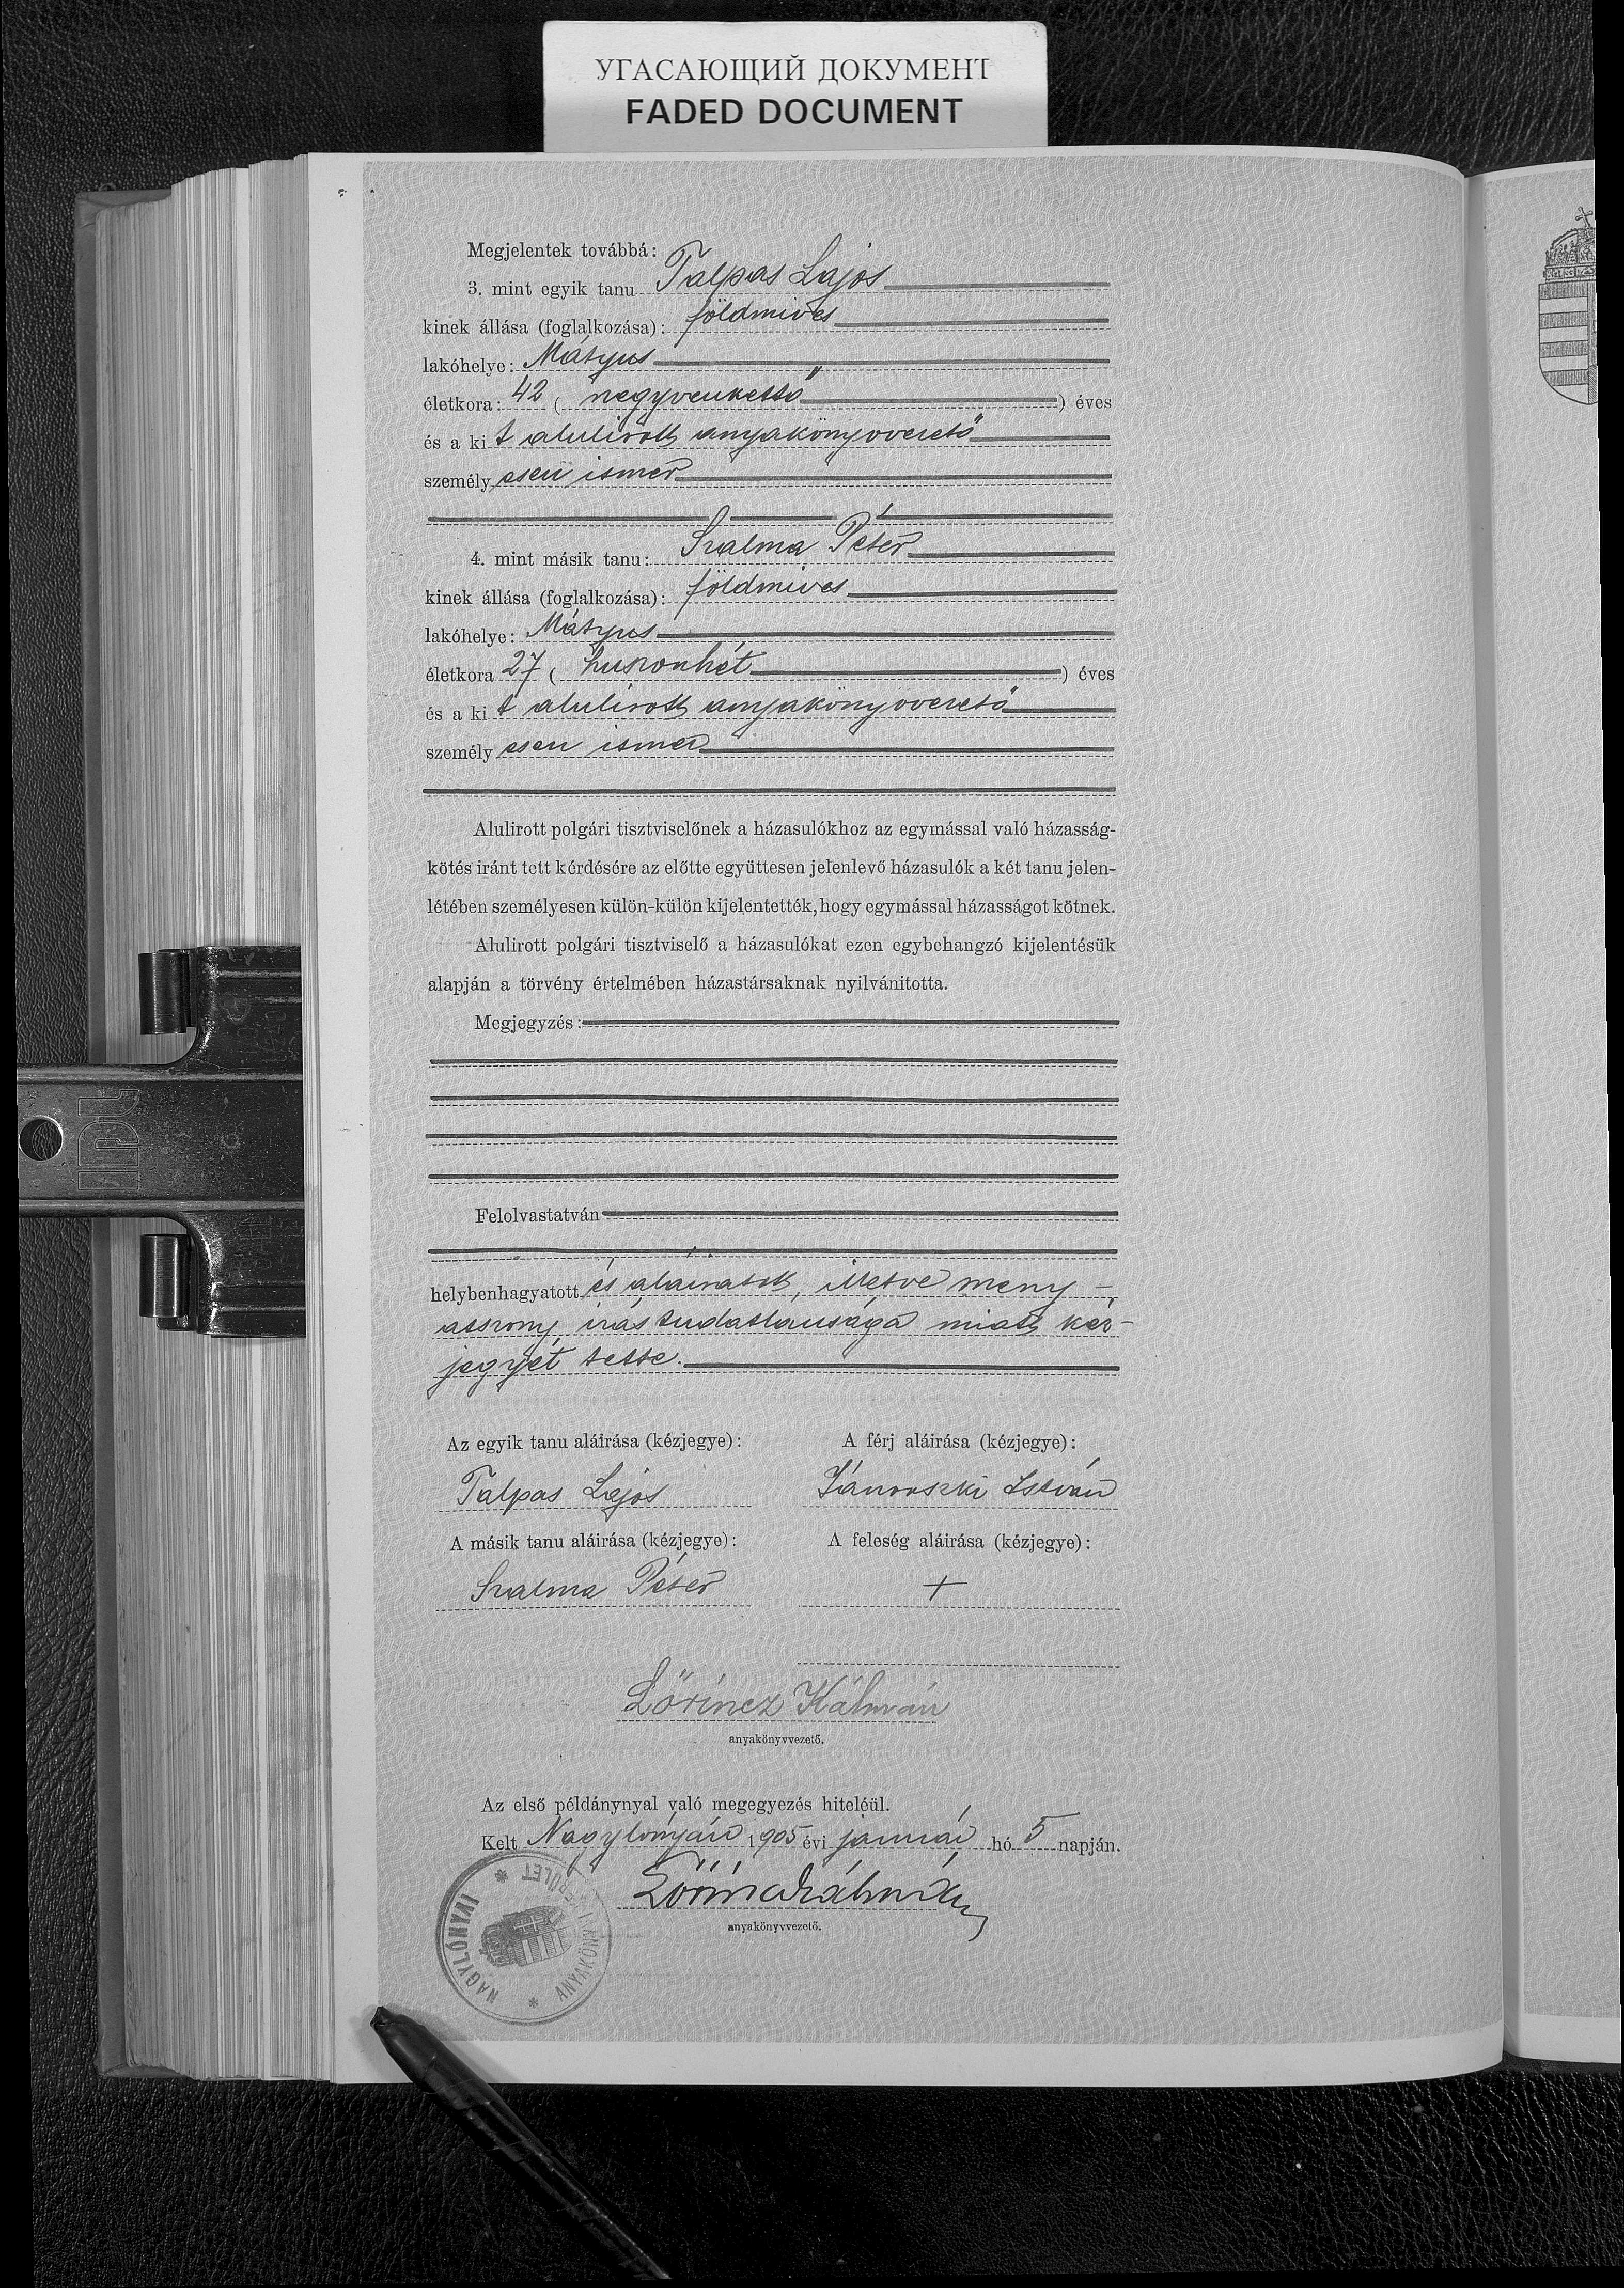 УГАСАЮЩИЙ ДОКУМЕНТ
FADED DOCUMENT
Megjelentek továbbá:
3. mint egyik tanu Talpas Lajos
kinek állása (foglalkozása): földmives
lakóhelye: Mátyus
életkora: 42 ( negyvenkettő ) éves
és a ki t alulirott anyakönyvvezető
személyesen ismer
4. mint másik tanu: Szalma Péter
kinek állása (foglalkozása): földmives
lakóhelye: Mátyus
életkora 27 ( huszonhét ) éves
és a ki t alulirott anyakönyvvezető
személyesen ismer
Alulirott polgári tisztviselőnek a házasulókhoz az egymással való házasság-
kötés iránt tett kérdésére az előtte együttesen jelenlevő házasulók a két tanu jelen-
létében személyesen külön-külön kijelentették, hogy egymással házasságot kötnek.
Alulirott polgári tisztviselő a házasulókat ezen egybehangzó kijelentésük
alapján a törvény értelmében házastársaknak nyilvánitotta.
Megjegyzés:
Felolvastatván
helybenhagyatott és aláiratott, illetve meny-
asszony irástudatlansága miatt kéz-
jegyét tette.
Az egyik tanu aláirása (kézjegye): A férj aláirása (kézjegye):
Talpas Lajos Jánoszki István
A másik tanu aláirása (kézjegye): A feleség aláirása (kézjegye):
Szalma Péter +
Lőrincz Kálmán
anyakönyvvezető.
Az első példánynyal való megegyezés hiteléül.
Kelt Nagylónyán 1905 évi január hó 5 napján.
Lőrincz Kálmán
anyakönyvvezető.
NAGYLÓNYAI * ANYAKÖNYVI KERÜLET *